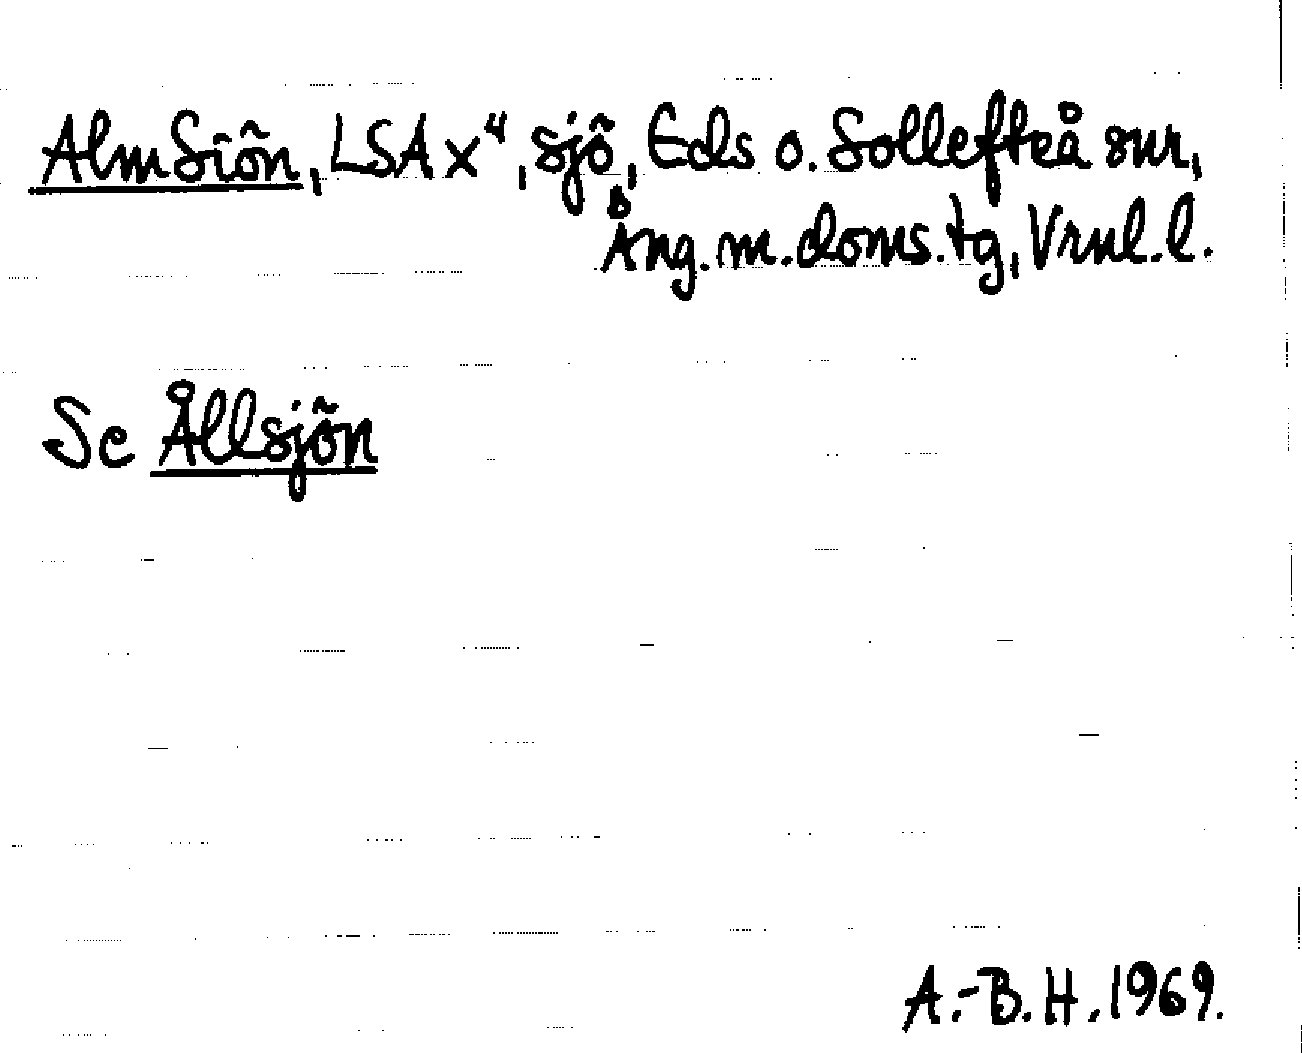 AlmSiõn, LSA x⁴, sjõ, Eds o. Sollefteå snr,
Ång. m. doms. tg, Vrnl. l.
Se Ållsjõn
A.-B. H. 1969.